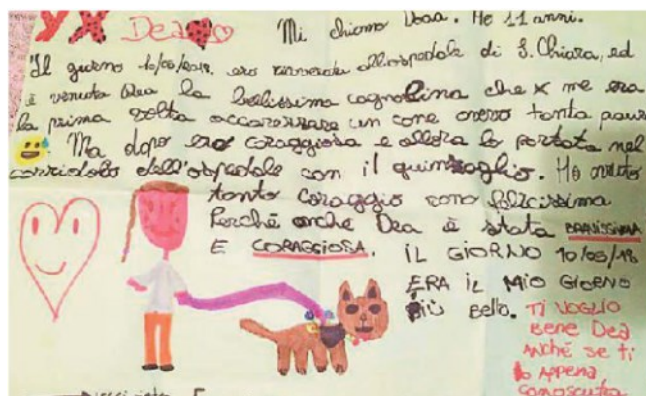 X Dea
Mi chiamo. Ho 11 anni.
Il giorno 10/05/2018. ero ricoverata all'ospedale di S. Chiara, ed
è venuta Dea la bellissima cagnolina che x me era
la prima volta accarezzare un cane avevo tanta paura
Ma dopo ero coraggiosa e allora lo portata nel
corridoio dell'ospedale con il guinzaglio. Ho avuto
tanto coraggio sono felicissima
Perché anche Dea è stata BRAVISSIMA
E CORAGGIOSA. IL GIORNO 10/05/18
ERA IL MIO GIORNO
Più Bello. TI VOGLIO
Bene Dea
ANCHE se ti
ho APPENA
conosciuta